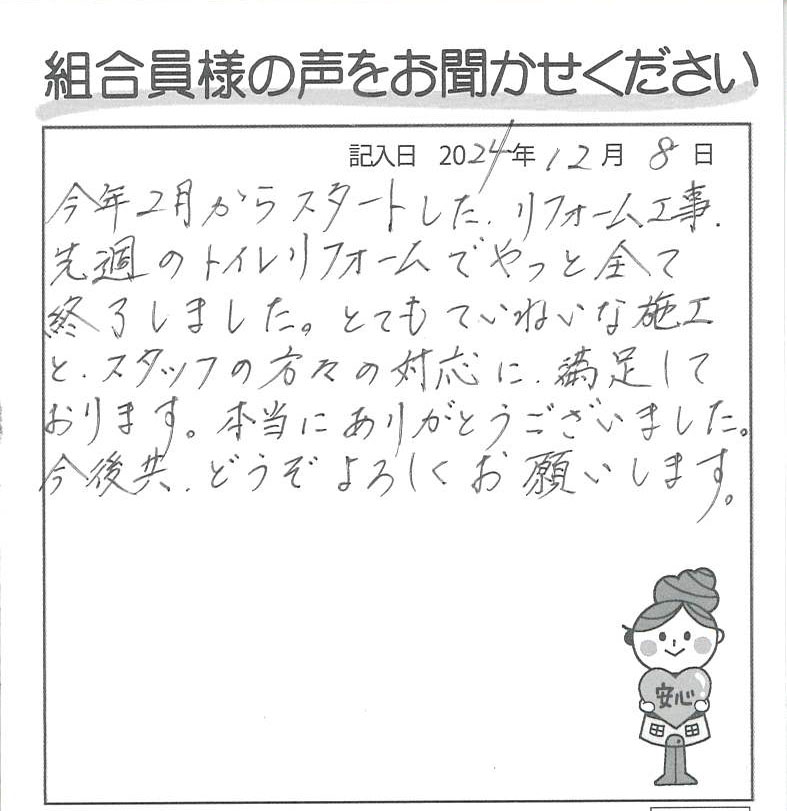 組合員様の声をお聞かせください
記入日 2024年 12月 8日
今年2月からスタートした、リフォーム工事、
先週のトイレリフォームでやっと全て
終了しました。とてもていねいな施工
と、スタッフの方々の対応に、満足して
おります。本当にありがとうございました。
今後共、どうぞよろしくお願いします。
安心